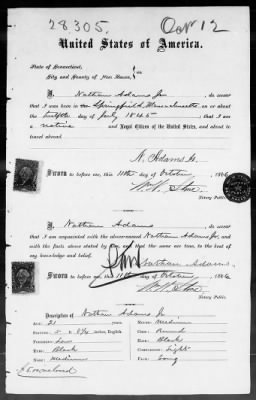 28305.
Oct 12
United States of America.
State of Connecticut,
City and County of New Haven,
I, Nathan Adams Jr do swear
that I was born in Springfield, Massachusetts on the
twelfth day of July 1845
native and Loyal Citizen of the United States, and about to
travel abroad.
N. Adams Jr.
Sworn to before me, this 11th day of October, 1866
Notary Public.
I, Nathan Adams do swear
that I am acquainted with the above-named Nathan Adams Jr. and
with the facts above stated by him and that the same are true, to the best of
my knowledge and belief.
Nathan Adams
Sworn to before me, this 11th day of October 1866
Notary Public.
Description of Nathan Adams Jr
Age: 21
Stature: English.
Forehead: Low
Eyes: Black
Nose: Medium
Mouth: Medium
Chin: Round
Hair: Black
Complexion: Light
Face: Long